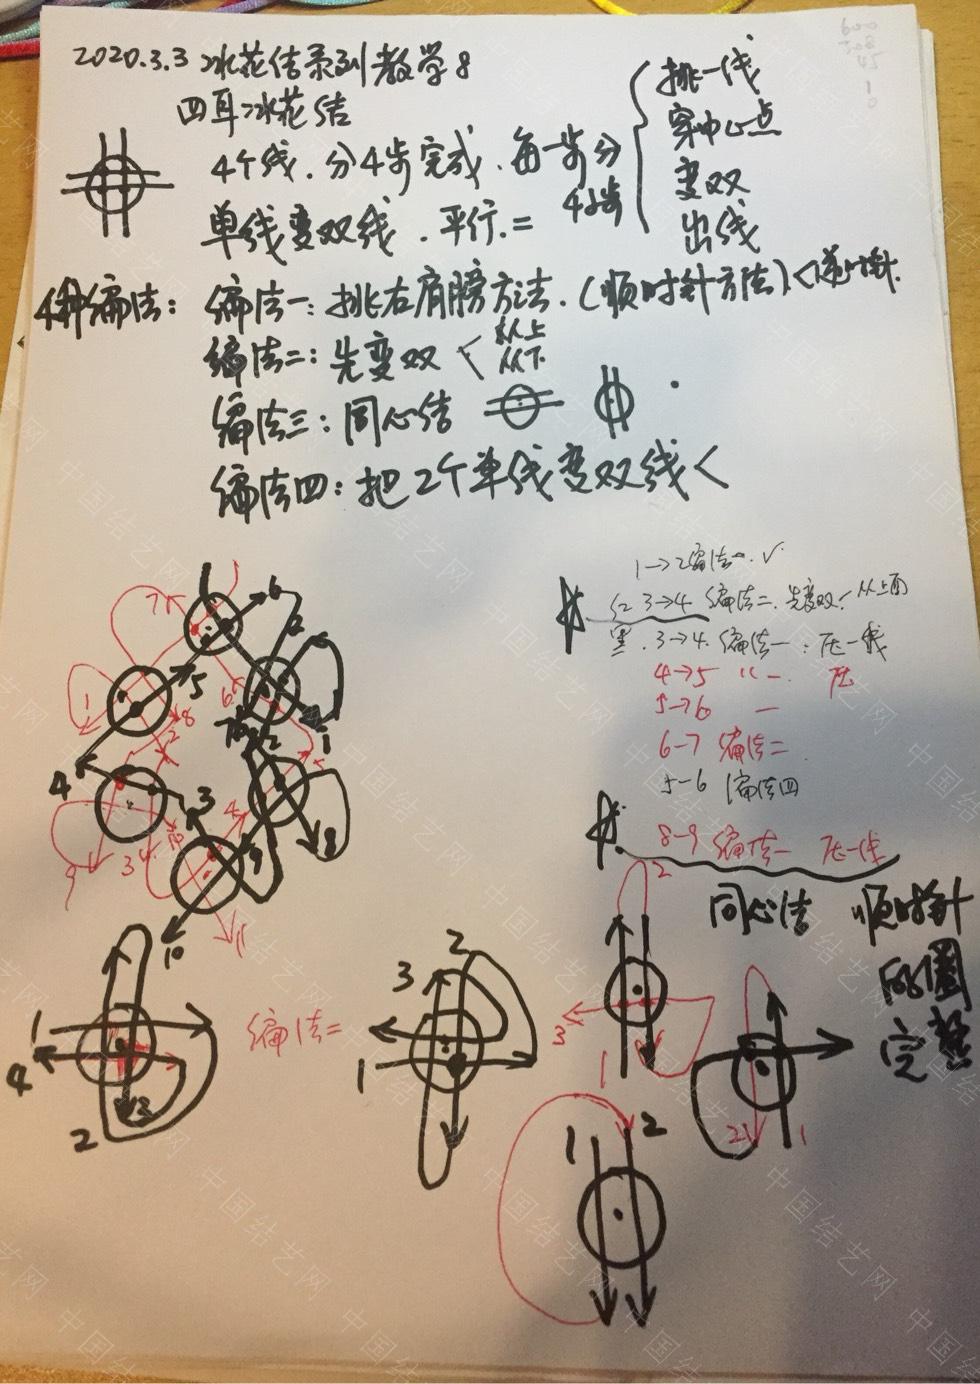 2020.3.3 冰花结系列教学8
四耳冰花结
4个线.分4步完成.每一步分4小步
挑一线
穿中心点
变双
出线
单线变双线.平行.=
4种编法:
编法一:挑右肩膀方法.(顺时针方法)<逆时针.
编法二:先变双<从上
从下
编法三:同心结
编法四:把2个单线变双线<
1→2编法一.√
红3→4 编法二.先变双.从上面
黑.3→4.编法一:压一线
4→5 〃一. 压
5→6 一
6-7 编法二
5-6 编法四
8-9 编法一 压一线
同心法 顺时针
的圈
完整
编法二
中国结艺网